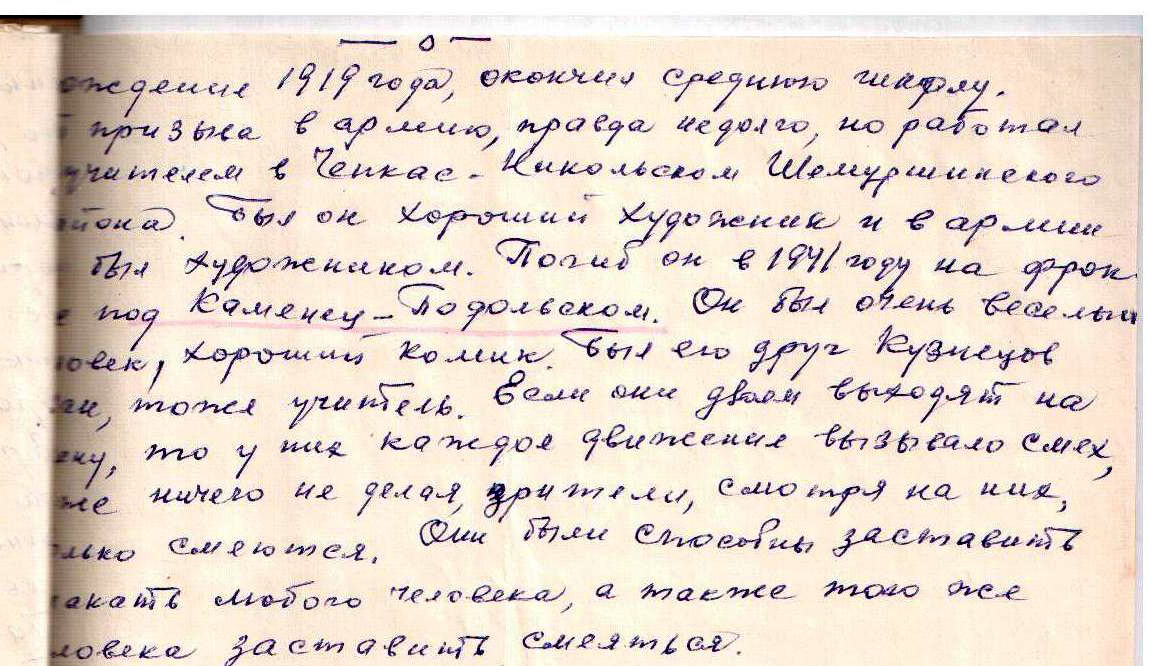 — о —
ождения 1919 года, окончил среднюю школу.
призыва в армию, правда недолго, но работал
учителем в Чепкас-Никольском Шемуршинского
йона. Был он хороший художник и в армии
был художником. Погиб он в 1941 году на фрон
е под Каменец-Подольском. Он был очень веселый
ловек, хороший комик. Был его друг Кузнецов
ан, тоже учитель. Если они двоем выходят на
ену, то у них каждое движение вызывало смех,
же ничего не делая, зрители, смотря на них,
лько смеются. Они были способны заставить
акать любого человека, а также того же
ловека заставить смеяться.